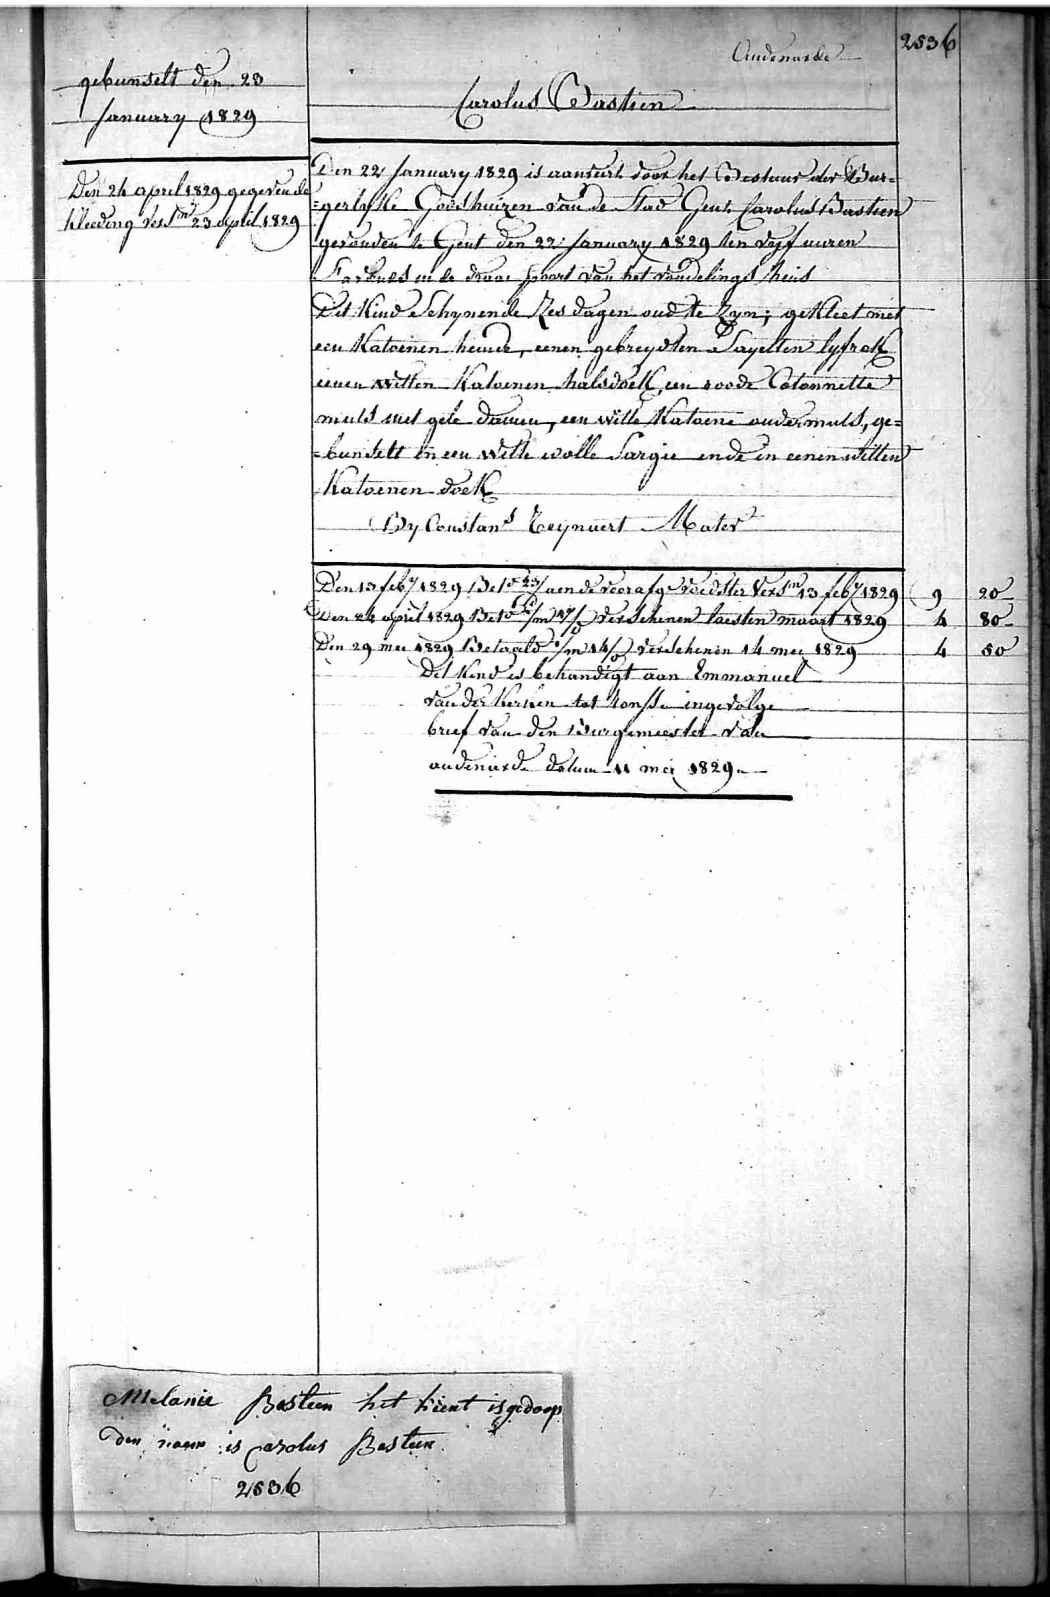 Audenaerde
2536
gebunselt den 23
January 1829
Carolus Bastien
Den 24 april 1829 gegeven de
kleeding versn 23 April 1829
Den 22 January 1829 is aanveirt door het Bestuur der Bur=
=gerlyke Godshuizen van de Stad Gent Carolus Bastien
gevonden te Gent den 22 January 1829 ten vyf uuren
's avonds in de draai poort van het vondelings huis
Dit Kind Schynende Zes dagen oud te Zyn; gekleet met
een Katoenen hemde, eenen gebreyden Sayetten lyfrok
eenen witten Katoenen halsdoek, een roode Cotonnette
muts met gele, een witte Katoene ondermuts, ge=
=bunselt in een witte wolle Sargie ende in eenen witten
Katoenen doek
By Constans Teynaert Mater
Den 13 feby 1829 Bet aen de voorafge voedster versn 13 feby 1829 9 20
Den 24 april 1829 Bet verschenen laesten maart 1829 4 80
Den 29 mei 1829 Betaald verschenen 14 mei 1829 4 50
Dit Kind is behandigt aan Emmanuel
van der Kerken tot ronsse ingevolge
brief van den Burgemeester van
audenaerde datum 11 mei 1829
Melanie Basteen het kient is gedoop
den naem is Carolus Basteen
2536